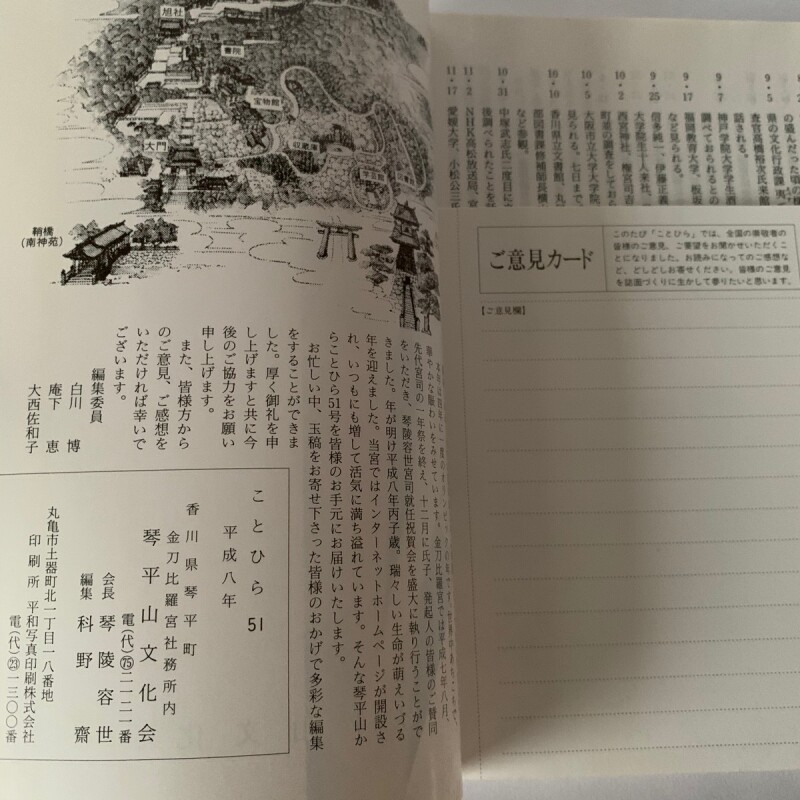 旭社
書院
宝物館
大門
収蔵庫
学芸館
鞘橋
(南神苑)
先代宮司の一年祭を終え、十二月に氏子、発起人の皆様のご賛同
をいただき、琴陵容世宮司就任祝賀会を盛大に執り行うことがで
きました。年が明け平成八年丙子歳。瑞々しい生命が萌えいづる
年を迎えました。当宮ではインターネットホームページが開設さ
れ、いつもにも増して活気に満ち溢れています。そんな琴平山か
らことひら51号を皆様のお手元にお届けいたします。
お忙しい中、玉稿をお寄せ下さった皆様のおかげで多彩な編集
をすることができま
した。厚く御礼を申
し上げますと共に今
後のご協力をお願い
申し上げます。
また、皆様方から
のご意見、ご感想を
いただければ幸いで
ございます。
編集委員
白川 博
庵下 恵
大西佐和子
ことひら 51
平成八年
香川県琴平町
金刀比羅宮社務所内
琴平山文化会
電(代)75二一二一番
会長 琴陵容世
編集 科野齋
丸亀市土器町北一丁目一八番地
印刷所 平和写真印刷株式会社
電(代)23一三〇〇番
9・5
査官高橋裕次氏来館
話される。
9・7
神戸学院大学学生酒
調べておられるとの
9・17
福岡教育大学、板坂
など見られる。
9・25
信多純一、伊藤正義
大学院生十人来社、
10・2
西宮神社、権宮司吉
町並の調査をしてお
10・5
大阪市立大学大学院
見られる。七日まで
10・10
香川県立文書館、丸
部図書課修補師長横
など参観。
10・31
中塚武志氏三度目に来
後調べられたことを話
11・2
NHK高松放送局、宮
11・17
愛媛大学、小松公三氏
ご意見カード
このたび「ことひら」では、全国の崇敬者の
皆様のご意見、ご要望をお聞かせいただくこ
とになりました。お読みになってのご感想な
ど、どしどしお寄せください。皆様のご意見
を誌面づくりに生かして参りたいと思います。
【ご意見欄】